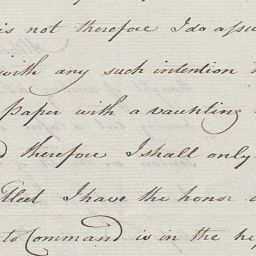 is not therefore I do assu
with any such intention
Paper with a vaunting
therefore I shall only
Fleet I have the honor
to Command is in the hi